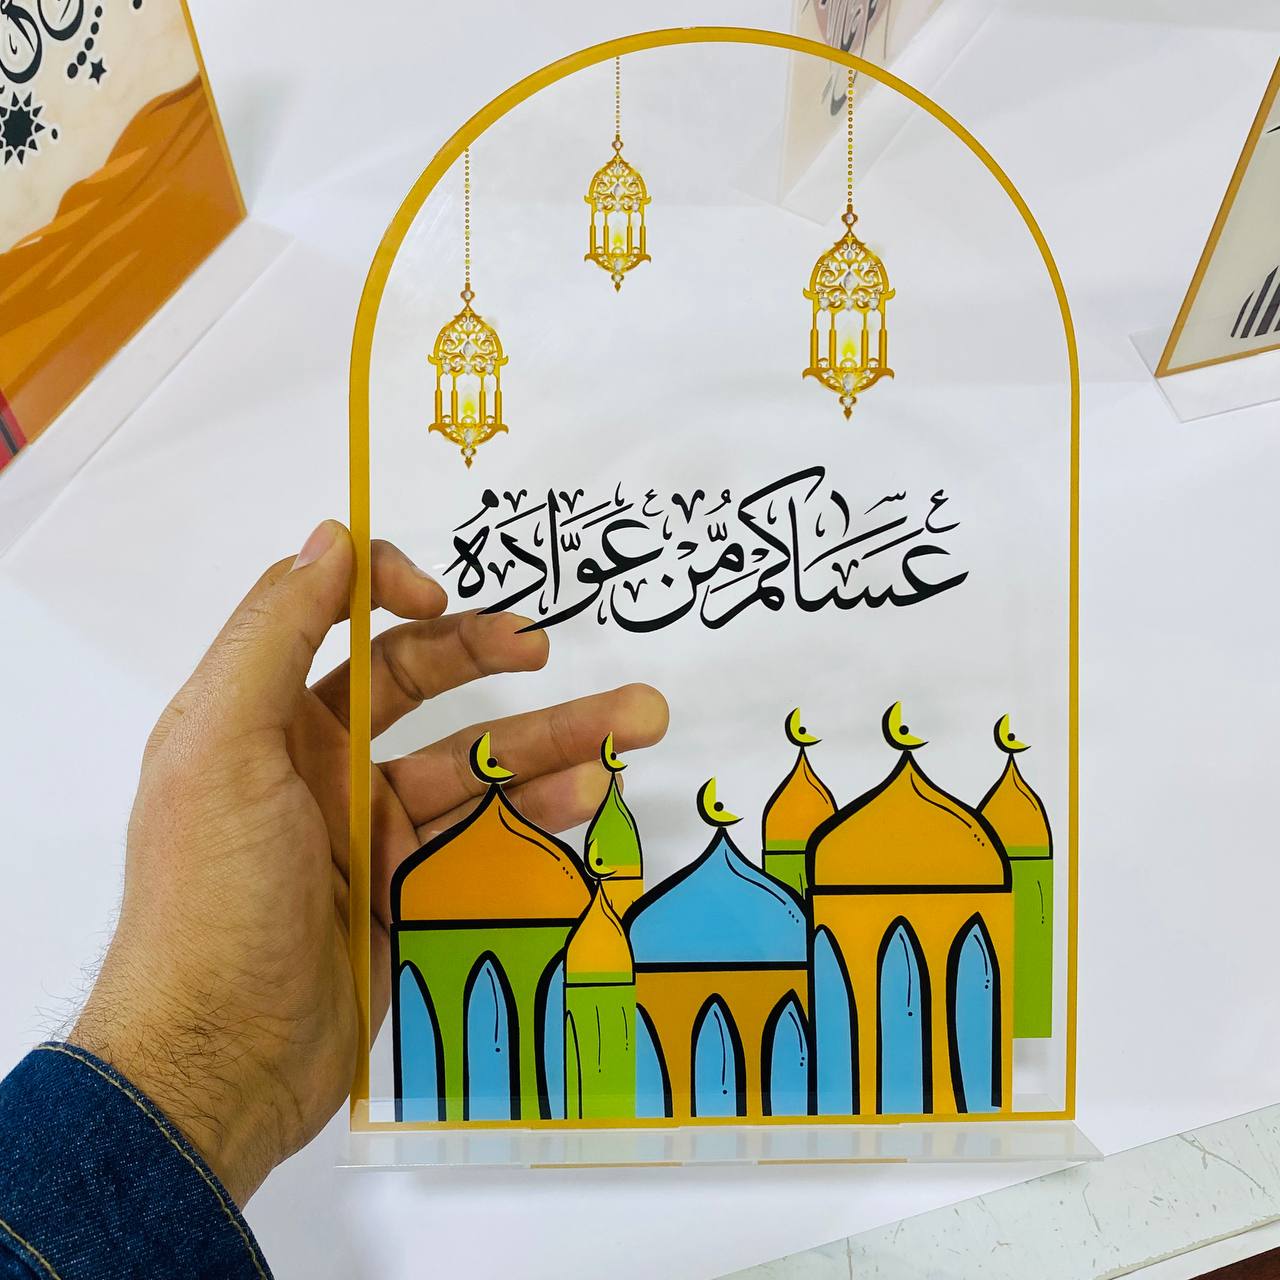 عَسَاكم مِّن عَوَّادَهُ